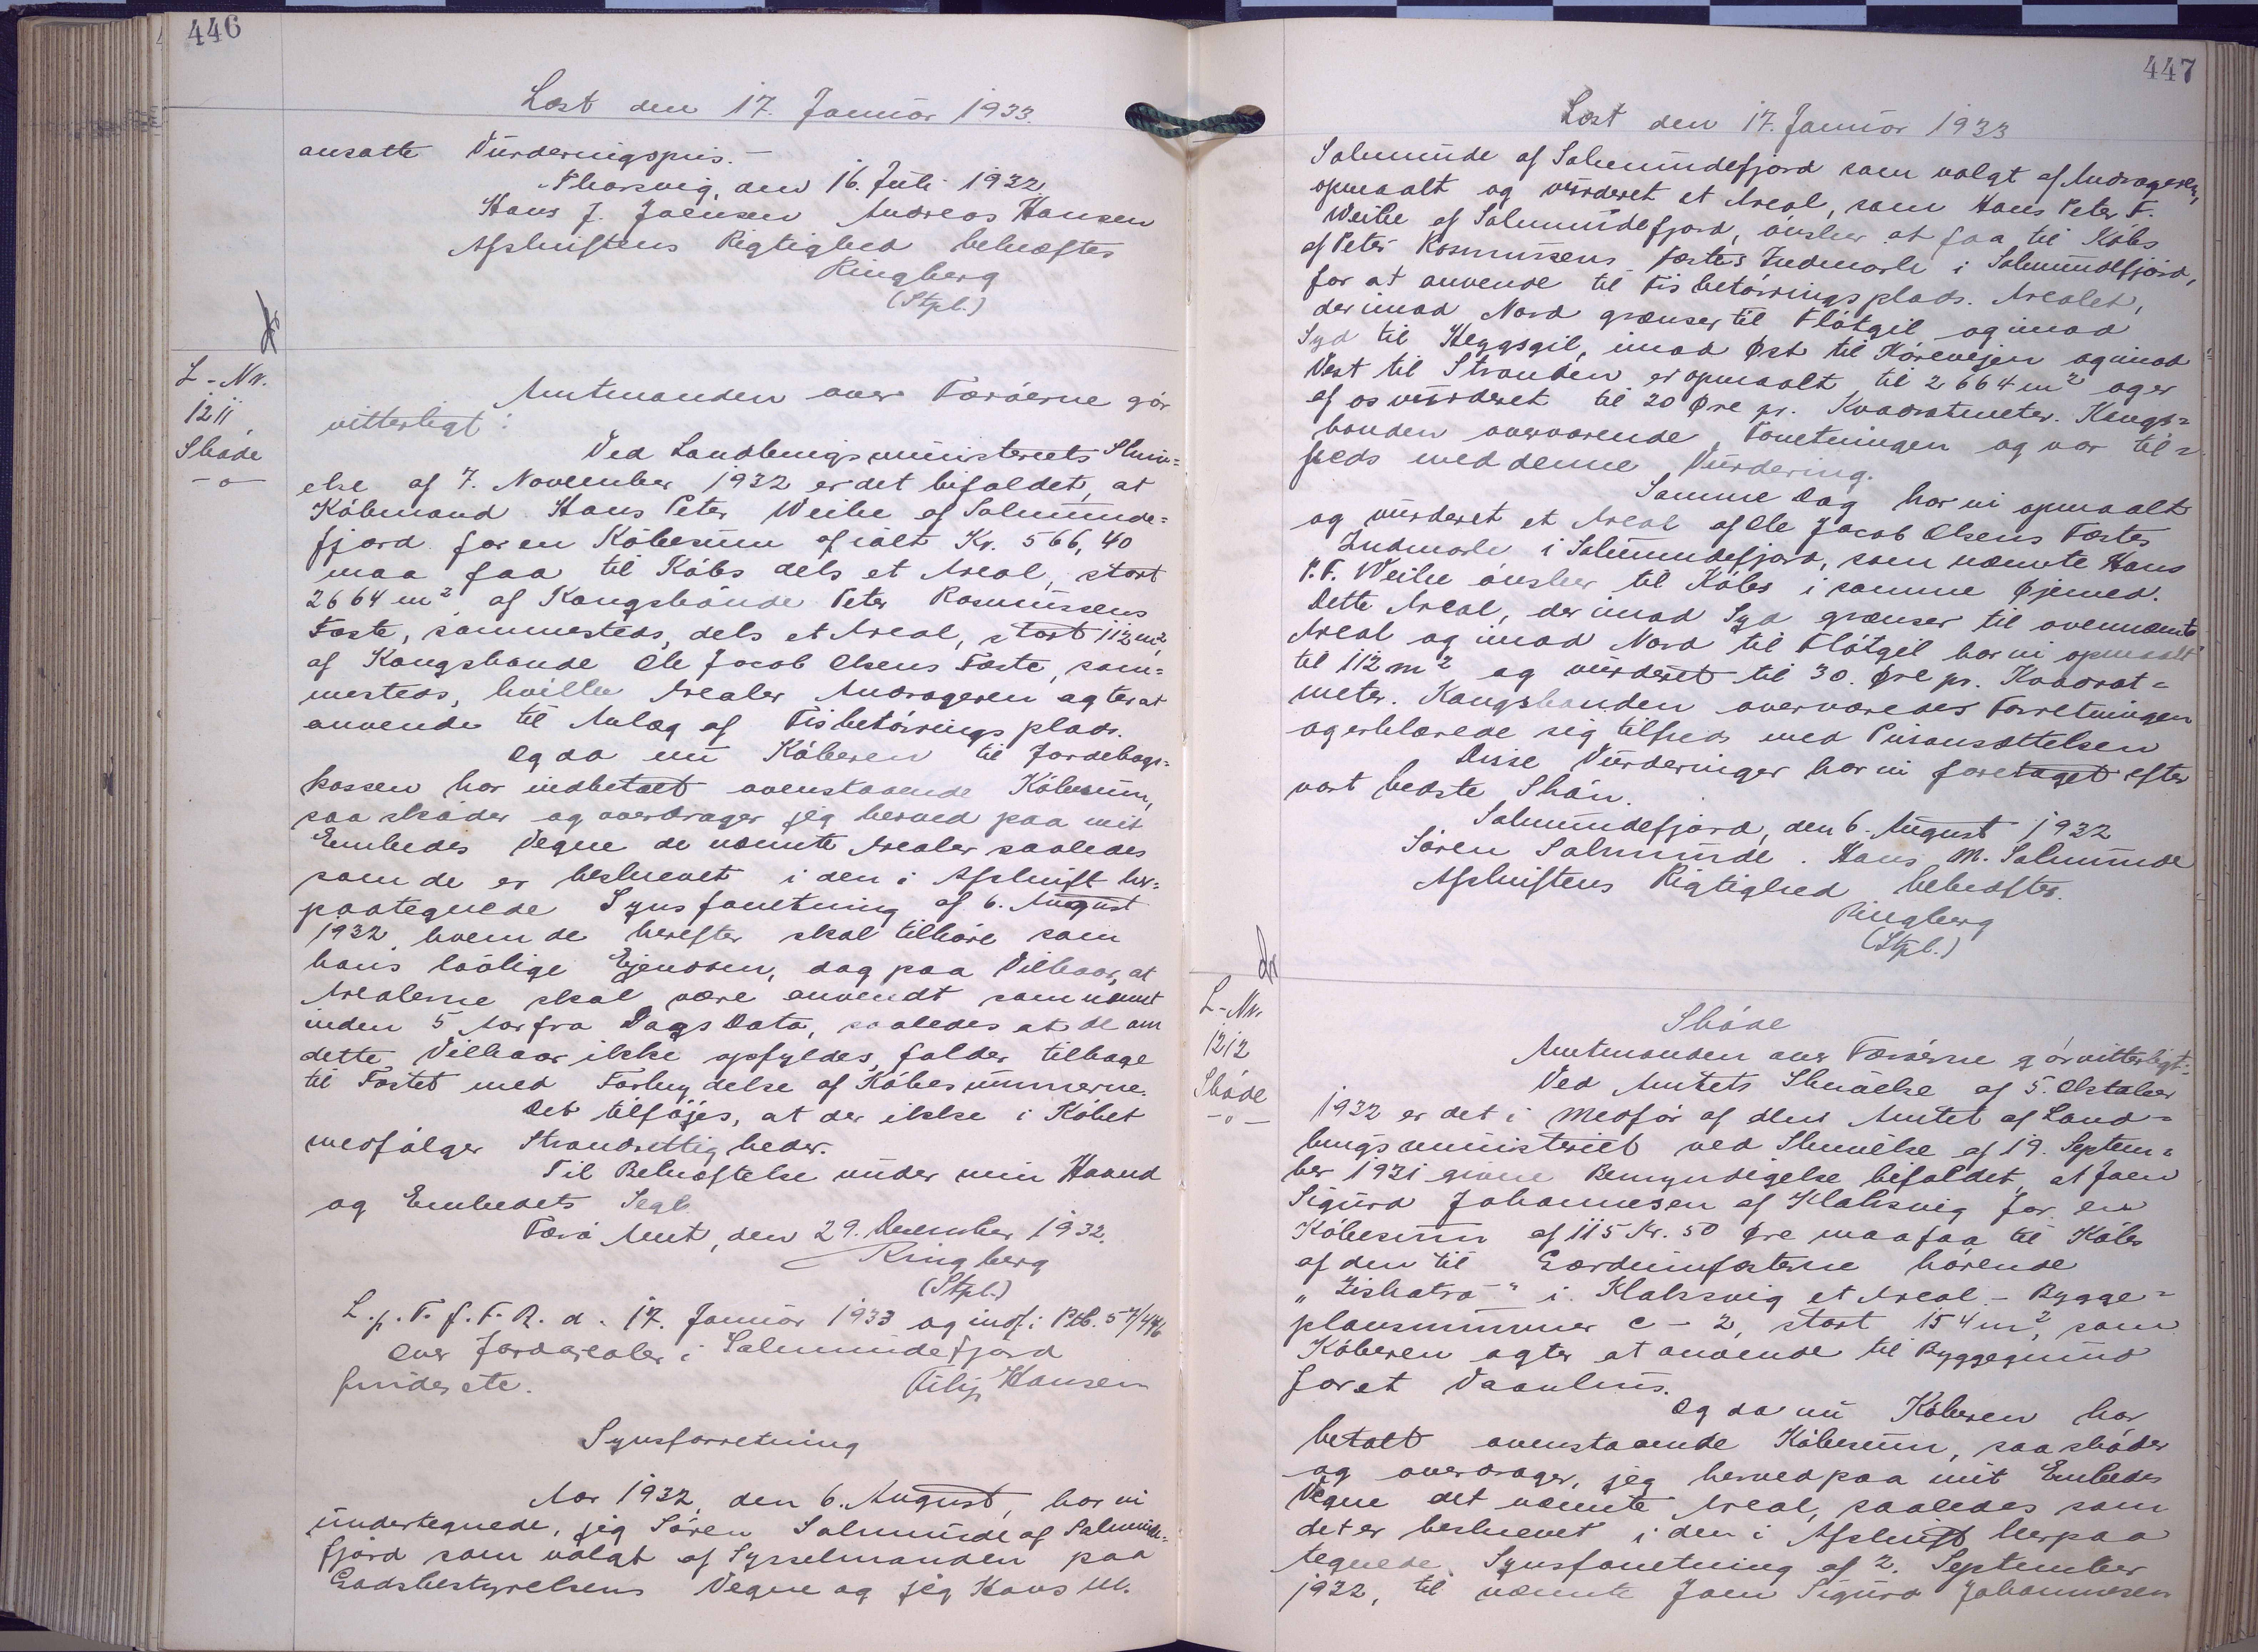 446
Læst den 17. Januar 1933.
ansatte Vurderingspris.-
Thorsvig, den 16. Juli 1932.
Hans J. Joensen Andreas Hansen
Afskriftens Rigtighed bekræftes
Ringberg
(Stpl.)
L-Nr.
1211
Skøde
-o-
Amtmanden over Færøerne gør
vitterligt:
Ved Landbrugsministeriets Skriv=
else af 7. November 1932 er det bifaldet, at
Købmand Hans Peter Weihe af Salmunde=
fjord for en Købesum af ialt Kr. 566,40
maa faa til Købs dels et Areal, stort
2664 m², af Kongsbonde Peter Rasmussens
Fæste, sammesteds, dels et Areal, stort 112 m²,
af Kongsbonde Ole Jacob Olsens Fæste, sam=
mesteds, hvilke Arealer Andrageren agter at
anvende til Anlæg af Fisketørringsplads.
Og da nu Køberen til Jordebogs=
kassen har indbetalt ovenstaaende Købesum,
saa skøder og overdrager jeg herved paa mit
Embedes Vegne de nævnte Arealer saaledes
som de er beskrevet i den i Afskrift her=
paategnede Synsforretning af 6. August
1932, hvem de herefter skal tilhøre som
hans lovlige Ejendom, dog paa Vilkaar, at
Arealerne skal være anvendt som nævnt
inden 5 Aar fra Dags Dato, saaledes at de om
dette Vilkaar ikke opfyldes, falder tilbage
til Fæstet med Fortrydelse af Købesummerne.
Det tilføjes, at der ikke i Købet
medfølger Strandrettigheder.
Til Bekræftelse under min Haand
og Embedets Segl.
Færø Amt, den 29. December 1932.
Ringberg
(Stpl.)
L. p. T. f. F. R. d. 17. Januar 1933 og indf. i Ptb. 57/446
Over Jordarealer i Salmundefjord
findes etc. Filip Hansen
Synsforretning
Aar 1932, den 6. August, har vi
undertegnede, jeg Søren Salmunde af Salmunde=
fjord som valgt af Sysselmanden paa
Godsbestyrelsens Vegne og jeg Hans M.
447
Læst den 17. Januar 1933
Salmunde af Salmundefjord som valgt af Andrageren,
opmaalt og vurderet et Areal, som Hans Peter F.
Weihe af Salmundefjord, ønsker at faa til Købs
af Peter Rasmussens Fæstes Indmark i Salmundefjord,
for at anvende til Fisketørringsplads. Arealet,
der imod Nord grænser til Fløtgil og imod
Syd til Heggsgil, imod Øst til Kørevejen og imod
Vest til Stranden er opmaalt til 2664 m² og er
af os vurderet til 20 Øre pr. Kvadratmeter. Kongs=
bonden overværende Forretningen og var til=
freds med denne Vurdering.
Samme Dag har vi opmaalt
og vurderet et Areal af Ole Jacob Olsens Fæstes
Indmark i Salmundefjord, som nævnte Hans
P. F. Weihe ønsker til Købs i samme Øjemed.
Dette Areal, der imod Syd grænser til ovennævnte
Areal og imod Nord til Fløtgil har vi opmaalt
til 112 m² og vurderet til 30. Øre pr. Kvadrat=
meter. Kongsbonden overværedes Forretningen
og erklærede sig tilfreds med Prisansættelsen
Disse Vurderinger har vi foretaget efter
vort bedste Skøn.
Salmundefjord, den 6. August 1932
Søren Salmunde. Hans M. Salmunde
Afskriftens Rigtighed bekræftes.
Ringberg
(Stpl.)
L-Nr.
1212
Skøde
-o-
Skøde
Amtmanden over Færøerne gør vitterligt:
Ved Amtets Skrivelse af 5. Oktober
1932 er det i Medfør af den Amtet af Land=
brugsministeriet ved Skrivelse af 19. Septem=
ber 1921 givne Bemyndigelse bifaldet, at Joen
Sigurd Johannesen af Klaksvig for en
Købesum af 115 Kr. 50 Øre maa faa til Købs
af den til Gærdeumfæsterne hørende
"Liskatrø" i Klaksvig et Areal - Bygge=
plansnummer C - 2, stort 154 m², som
Køberen agter at anvende til Byggegrund
for et Vaanhus.
Og da nu Køberen har
betalt ovenstaaende Købesum, saa skøder
og overdrager, jeg herved paa mit Embedes
Vegne det nævnte Areal, saaledes som
det er beskrevet i den i Afskrift herpaa
tegnede Synsforretning af 2. September
1932, til nævnte Joen Sigurd Johannesen